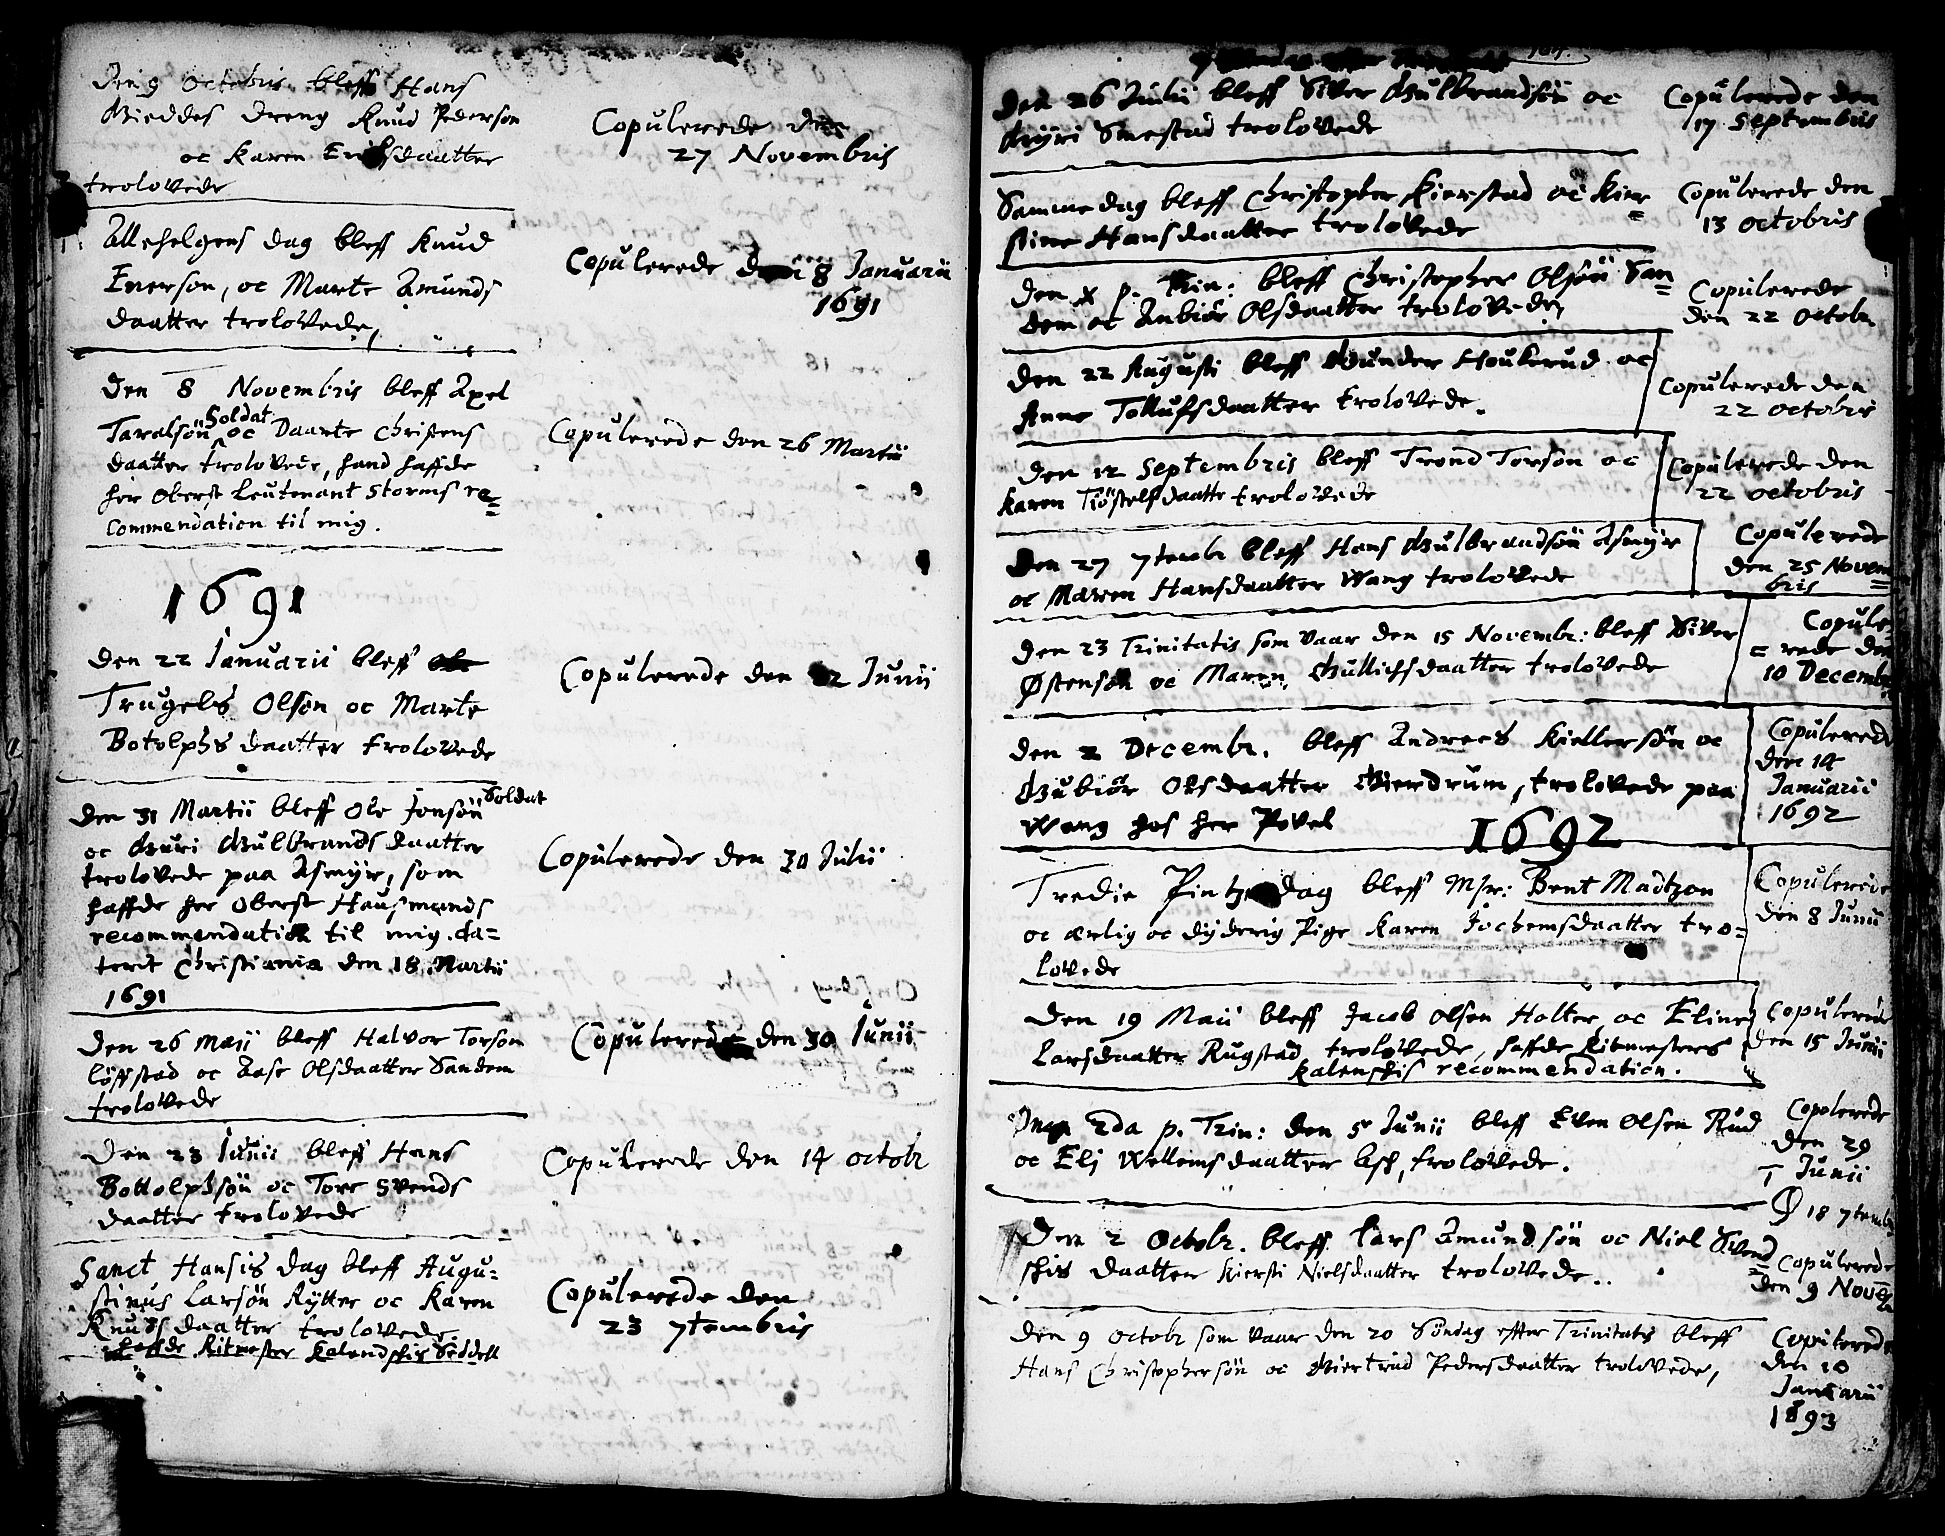 Den 9 Octobris bleff Hans
Gieddes Dreng Knud Pederson
oc Karen Erichsdaatter
trolovede
Copulerede den
27 Novembris
Allehelgens dag bleff Knud
Everson, oc Marte Amunds
daatter trolovede,
Copulerede den 8 Januarii
1691
Den 8 Novembris bleff Axel
Taralsön Soldat oc Daarte Christens
daatter trolovede, hand haffde
her Oberst Leutenant Storms re=
commendation til mig.
Copulerede den 26 Martii
1691
Den 22 Januarii bleff
Trugels Olson oc Marte
Botolphs daatter trolovede
Copulerede den 2 Junii
Den 31 Martii bleff Ole Jonsön Soldat
oc Guri Gulbrands daatter
trolovede paa Asmyr, som
haffde her Oberst Hausmands
recommendation til mig. da=
terit Christiania den 18 Martii
1691
Copulerede den 30 Julii
Den 26 Maii bleff Halvor Torson
Löffstad oc Aase Olsdaatter Sandem
trolovede
Copulerede den 30 Junii
Den 23 Junii bleff Hans
Bottolphsön oc Tore Svends
daatter trolovede
Copulerede den 14 Octobr
Sanct Hansis dag bleff Augu=
stinus Larsön Rytter oc Karen
Knuds daatter trolovede
haffde Ritmester Kalendskis Seddell
Copulerede den
23 7tembris
Den 26 Julii bleff Siver Gulbrandsön oc
Smestad trolovede
Copulerede den
17 Septembris
Samme dag bleff Christopher Kierstad oc Kier=
stine Hansdaatter trolovede
Copulerede den
13 Octobris
Den X p. Trin: bleff Christopher Olsön San=
dem oc Anbiör Olsdaatter trolovede,
Copulerede
den 22 Octobr.
Den 22 Augusti bleff Gunder Houkerud oc
Anne Tollufsdaatter trolovede.
Copulerede den
22 Octobris
Den 12 Septembris bleff Trond Torson oc
Karen Tiöstelsdaatte trolovede
Copulerede den
22 Octobris
Den 27 7tembr bleff Hans Gulbrandsön Asmyr
oc Maren Hansdaatter Wang trolovede
Copulerede
den 25 Novem=
bris
Den 23 Trinitatis som vaar den 15 Novembr: bleff Siver
Østensön oc Maren Gullichsdaatter trolovede
Copule=
rede den
10 Decembr
Den 2 Decembr. bleff Andrees Kiellersön oc
Gubiör Olsdaatter Gierdrum, trolovede paa
Wang hos her Povel
Copulerede
den 14
Januarii
1692
1692
Tredie Pintzedag bleff Msr: Bent Madtzon
oc ærlig oc dyderig Pige Karen Jochemsdaatter tro=
lovede
Copulerede
den 8 Junii
Den 19 Maii bleff Jacob Olsen Holter, oc Eline
Larsdaatter Rugstad trolovede, haffde Ritmesters
Kalenskis recommendation.
Copulerede
den 15 Junii
2da p. Trin: den 5 Junii bleff Even Olsen Rud
oc Eli Wellemsdaatter Ash, trolovede.
Copolerede
den 29
Junii
18 7tembr
Den 2 Octobr. bleff Lars Amundsön oc Niel Svend=
skis daatter Kiersti Nielsdaatter trolovede.
Copulerede
den 9 Nove
Den 9 Octobr som vaar den 20 Söndag effter Trinitatis bleff
Hans Christophersön oc Giertrud Pedersdaatter trolovede,
Copulerede
den 10
Januarii
1693